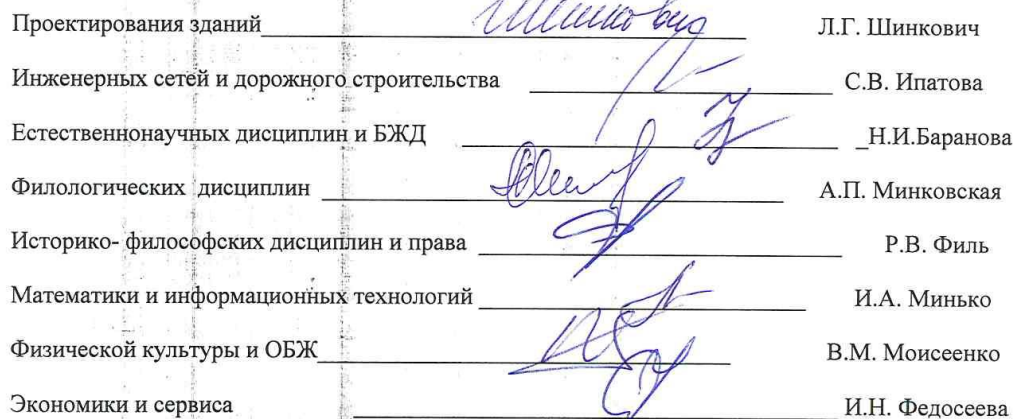 Проектирования зданий Шинкович Л.Г. Шинкович
Инженерных сетей и дорожного строительства С.В. Ипатова
Естественнонаучных дисциплин и БЖД _Н.И.Баранова
Филологических дисциплин А.П. Минковская
Историко- философских дисциплин и права Р.В. Филь
Математики и информационных технологий И.А. Минько
Физической культуры и ОБЖ В.М. Моисеенко
Экономики и сервиса И.Н. Федосеева